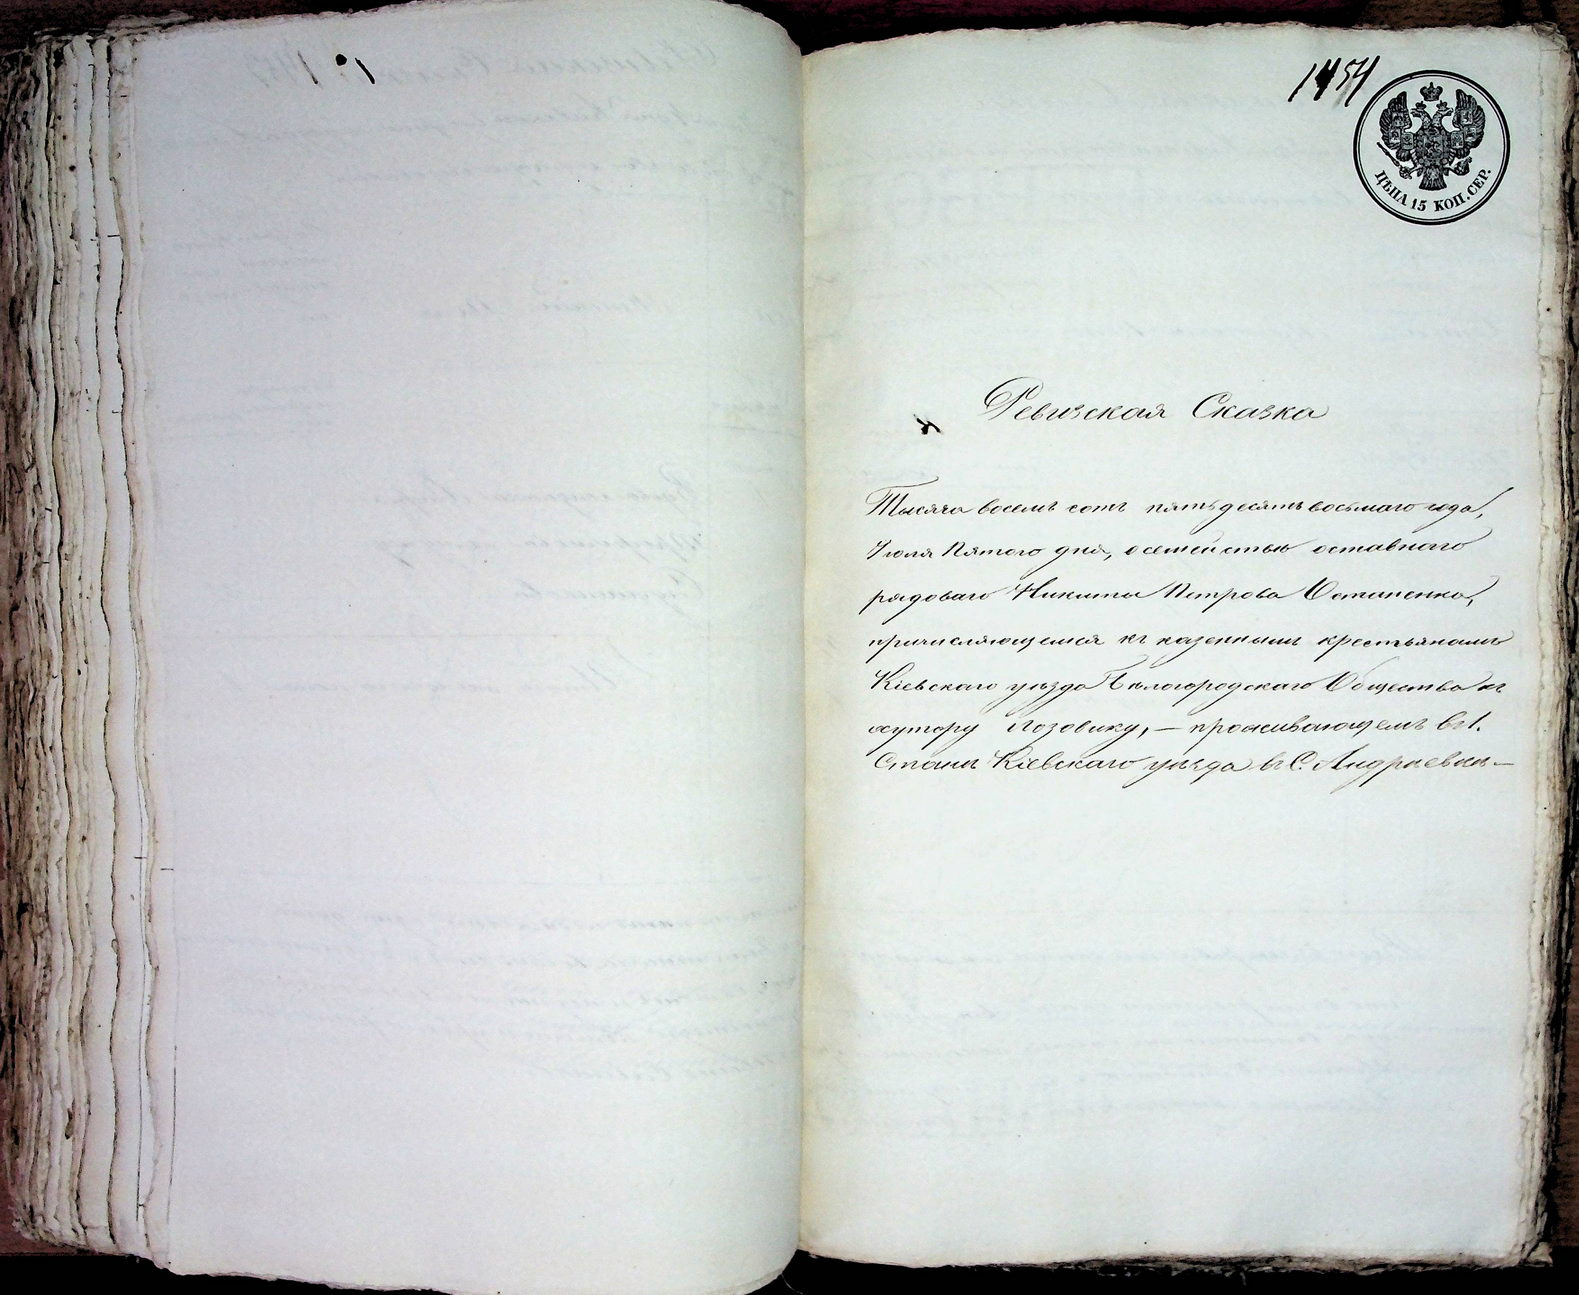 1454
ЦѢНА 15 КОП. СЕР.
Ревизская Сказка
Тысяча восемь сотъ пятьдесятъ восьмаго года,
Іюля Пятого дня, о семействѣ отставнаго
рядоваго Никиты Петрова Остапенка,
причисляющемся къ казеннымъ крестьянамъ
Кіевскаго уѣзда Бѣлогородскаго Общества къ
хутору Лозовику, — проживающемъ въ 1.
Станѣ Кіевскаго уѣзда въ С. Андреевкѣ —